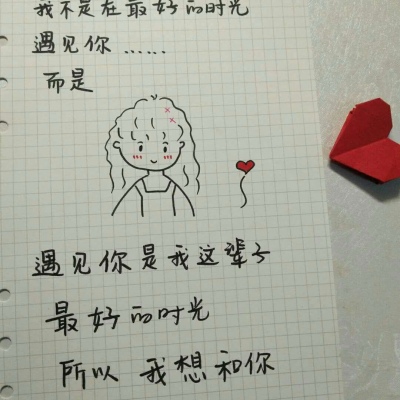 我不是在最好的时光
遇见你……
而是
遇见你是我这辈子
最好的时光
所以 我想和你